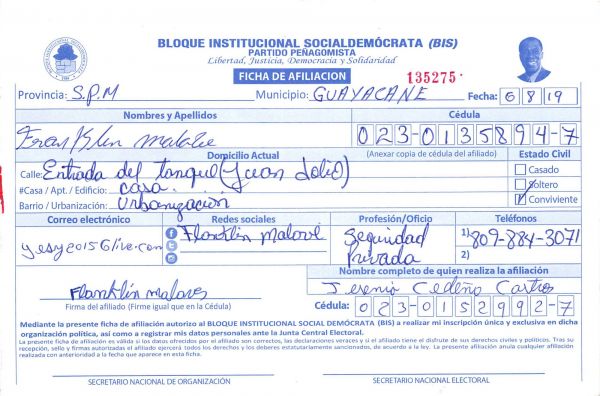 BLOQUE INSTITUCIONAL SOCIALDEMÓCRATA (BIS)
PARTIDO PEÑAGOMISTA
Libertad, Justicia, Democracia y Solidaridad
FICHA DE AFILIACION
135275
Provincia: S.P.M Municipio: GUAYACANE Fecha: 6 8 19
Nombres y Apellidos Cédula
Franklin 023-0135894-7
Domicilio Actual (Anexar copia de cédula del afiliado) Estado Civil
Calle: Entrada del tanque (Juan Dolio) Casado
#Casa / Apt. / Edificio: casa. Soltero
Barrio / Urbanización: Urbanización Conviviente
Correo electrónico Redes sociales Profesión/Oficio Teléfonos
yesye0156live.com Seguridad 1) 809-884-3071
Privada 2)
Nombre completo de quien realiza la afiliación
Yesenia Cedeño Castro
Firma del afiliado (Firme igual que en la Cédula) Cédula: 023-0152992-7
Mediante la presente ficha de afiliación autorizo al BLOQUE INSTITUCIONAL SOCIAL DEMÓCRATA (BIS) a realizar mi inscripción única y exclusiva en dicha
organización política, así como a registrar mis datos personales ante la Junta Central Electoral.
La presente ficha de afiliación es válida si los datos ofrecidos por el afiliado son correctos, las declaraciones veraces y si el afiliado tiene el disfrute de sus derechos civiles y políticos. Tras su
recepción, sello y firmas autorizadas el afiliado ejercerá todos los derechos y los deberes estatutariamente sancionados, de acuerdo a la ley. La presente afiliación anula cualquier afiliación
realizada con anterioridad a la fecha que aparece en esta ficha.
SECRETARIO NACIONAL DE ORGANIZACIÓN SECRETARIO NACIONAL ELECTORAL